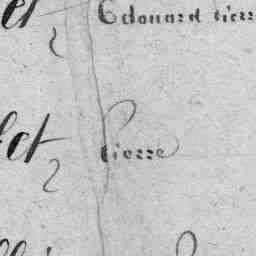 et Edouard pierr
let pierre